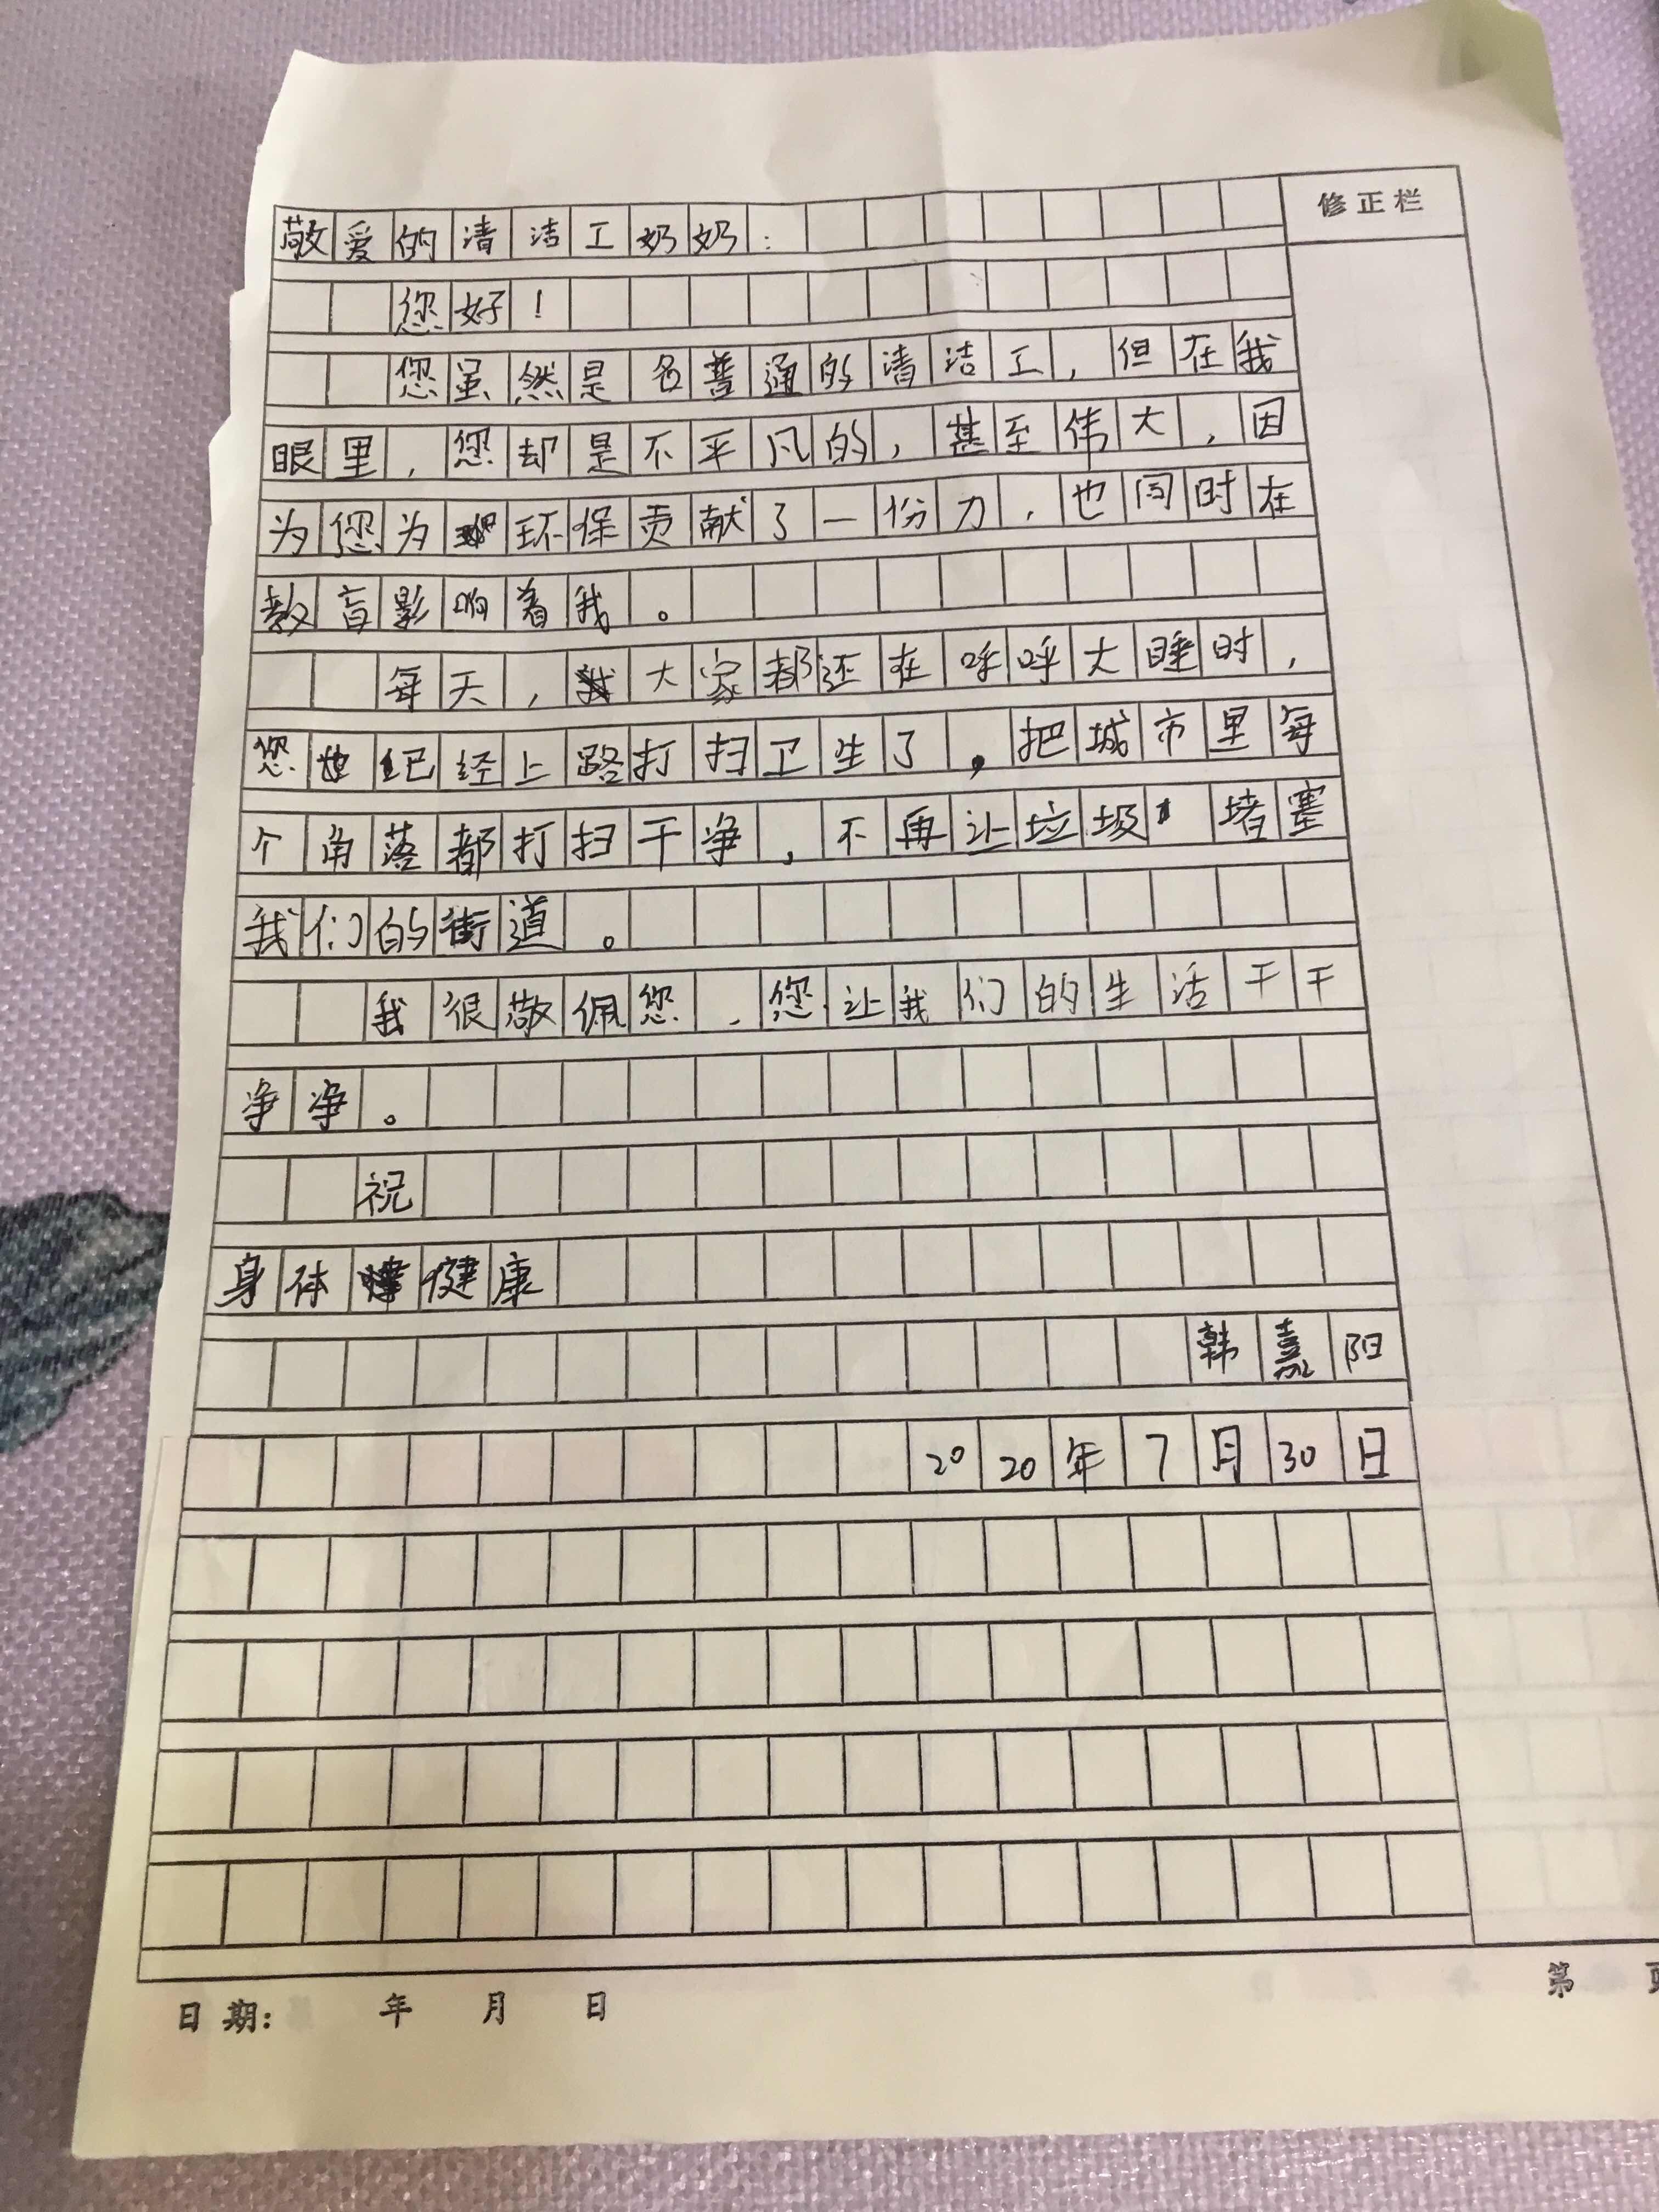 修正栏
敬爱的清洁工奶奶：
您好！
您虽然是名普通的清洁工，但在我
眼里，您却是不平凡的，甚至伟大，因
为您为环保贡献了一份力，也同时在
教育影响着我。
每天，大家都还在呼呼大睡时，
您已经上路打扫卫生了，把城市里每
个角落都打扫干净，不再让垃圾堵塞
我们的街道。
我很敬佩您，您让我们的生活干干
净净。
祝
身体健康
韩熹阳
2020年7月30日
日期： 年 月 日
第